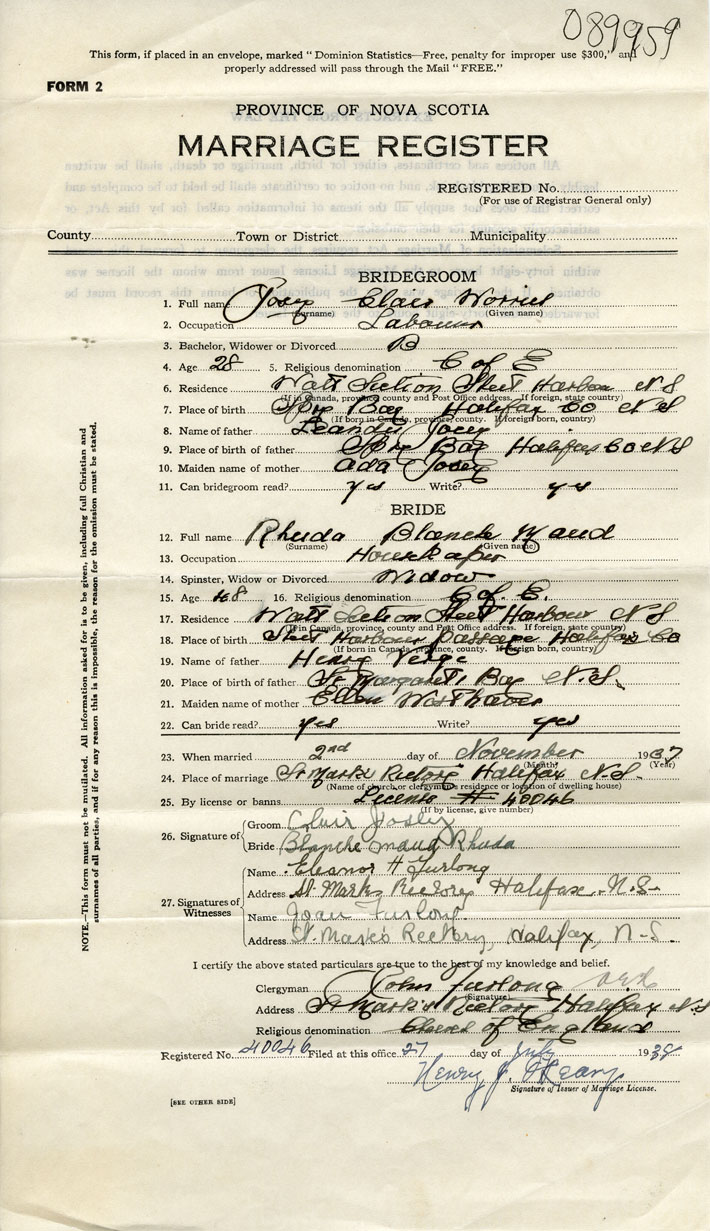 089959
This form, if placed in an envelope, marked "Dominion Statistics—Free, penalty for improper use $300," and
properly addressed will pass through the Mail "FREE."
FORM 2
PROVINCE OF NOVA SCOTIA
MARRIAGE REGISTER
REGISTERED No.
(For use of Registrar General only)
County Town or District Municipality
BRIDEGROOM
1. Full name Josey Clair Norris
(Surname) (Given name)
2. Occupation Labourer
3. Bachelor, Widower or Divorced B
4. Age 28 5. Religious denomination C of E
6. Residence Watt Section Sheet Harbour N S
(If in Canada, province, county and Post Office address. If foreign, state country)
7. Place of birth Spry Bay Halifax Co N S
(If born in Canada, province, county. If foreign born, country)
8. Name of father Leander Josey
9. Place of birth of father Spry Bay Halifax Co N S
10. Maiden name of mother Ada Josey
11. Can bridegroom read? yes Write? yes
BRIDE
12. Full name Rhuda Blanche Maud
(Surname) (Given name)
13. Occupation Housekeeper
14. Spinster, Widow or Divorced Widow
15. Age 48 16. Religious denomination C of E.
17. Residence Watt Section Sheet Harbour N S
(If in Canada, province, county and Post Office address. If foreign, state country)
18. Place of birth Sheet Harbour Passage Halifax Co
(If born in Canada, province, county. If foreign born, country)
19. Name of father Henry Verge
20. Place of birth of father St Margarets Bay N.S.
21. Maiden name of mother Ellen Westhaver
22. Can bride read? yes Write? yes
23. When married 2nd day of November 1937
(Month) (Year)
24. Place of marriage St Marks Rectory Halifax N.S.
(Name of church or clergyman's residence or location of dwelling house)
25. By license or banns License # 40046
(If by license, give number)
26. Signature of
Groom Clair Josey
Bride Blanche Maud Rhuda
27. Signatures of Witnesses
Name Eleanor H Furlong
Address St. Marks Rectory Halifax, N.S.
Name Joan Furlong
Address St. Mark's Rectory, Halifax, N-S.
I certify the above stated particulars are true to the best of my knowledge and belief.
Clergyman John Furlong
(Signature)
Address St Mark's Rectory Halifax N S
Religious denomination Church of England
Registered No. 40046 Filed at this office 27 day of July 1938
Henry J. O'Leary
Signature of Issuer of Marriage License.
[SEE OTHER SIDE]
NOTE.—This form must not be mutilated. All information asked for is to be given, including full Christian and
surnames of all parties, and if for any reason this is impossible, the reason for the omission must be stated.